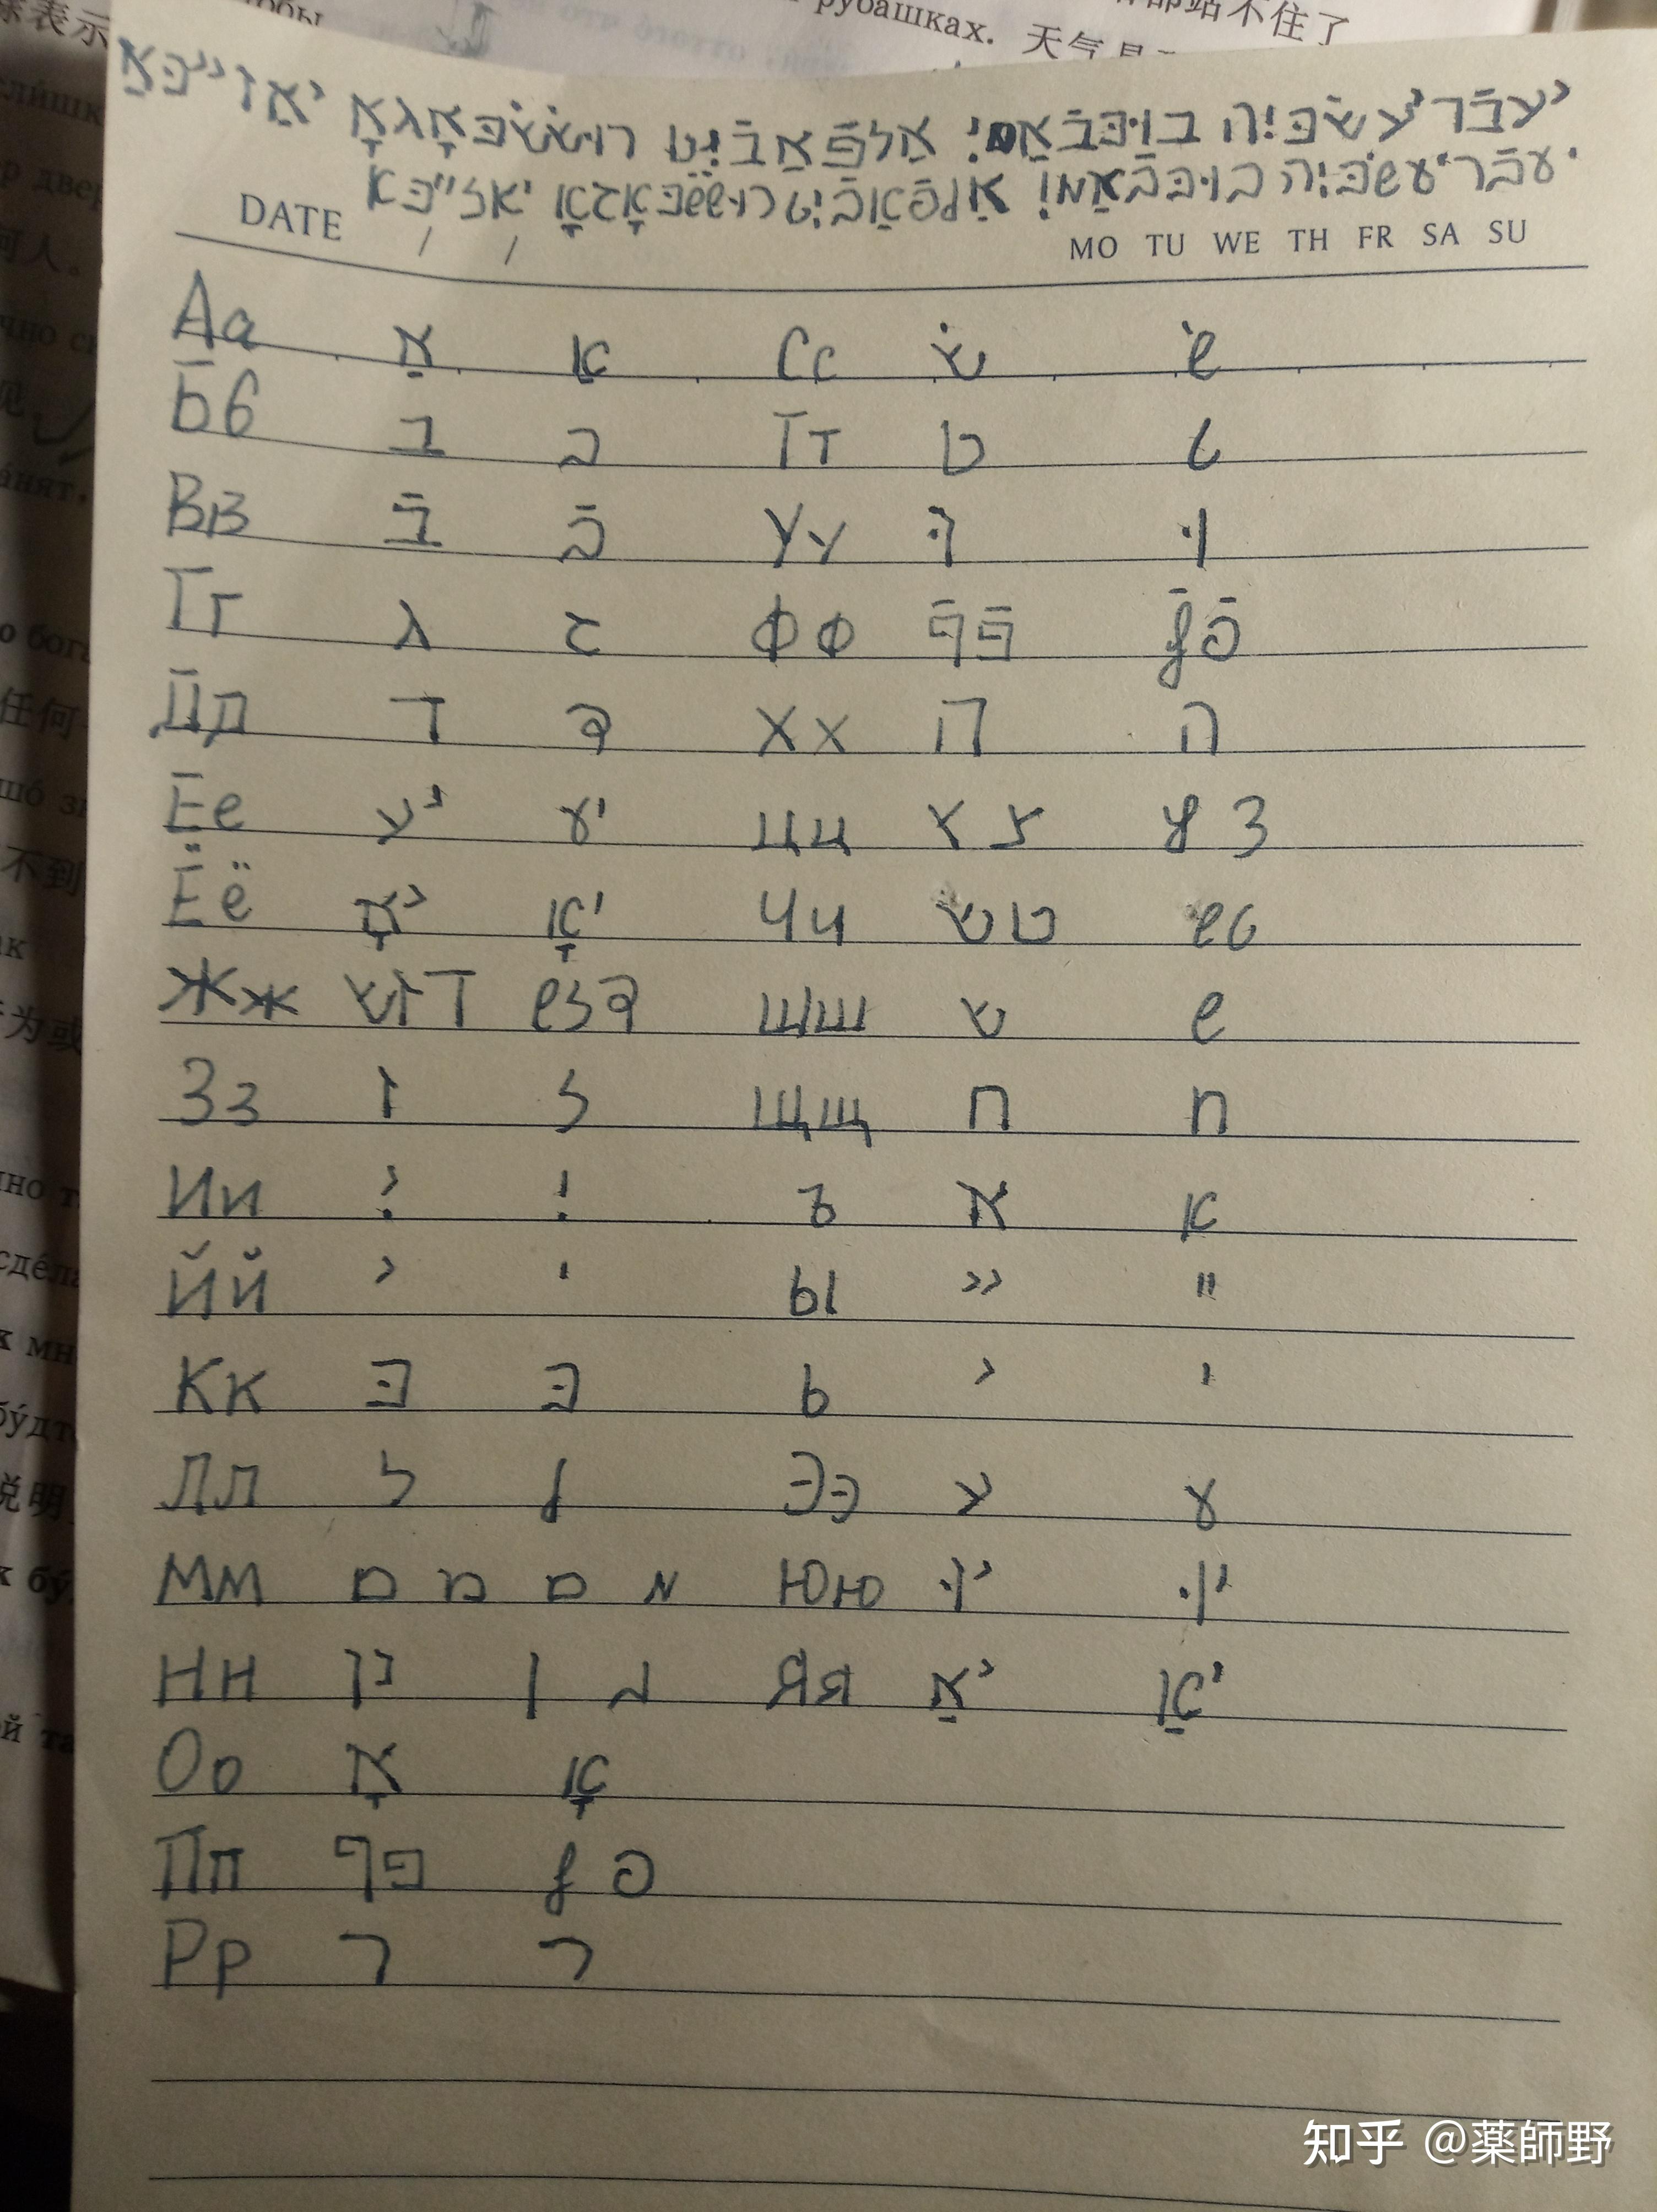 表示
站不住了
рубашках. 天气
יעבֿריעשׂכּיִה בוּכּבֿאַמיִ אַלפֿאַבֿיִט רוּשׂשׂכּאָגאָ יאַזייכּאַ
יעבֿריעשׂכּיִה בוּכּבֿאַמיִ אַלפֿאַבֿיִט רוּשׂשׂכּאָגאָ יאזייכּא
DATE / / MO TU WE TH FR SA SU
Аа אַ אַ Сс שׂ שׂ
Бб ב ב Тт ט ט
Вв בֿ בֿ Уу וּ וּ
Гг ג ג Фф ףֿ פֿ ףֿ פֿ
Дд ד ד Хх ה ה
Ее יע יע Цц ץ צ ץ צ
Ёё יאָ יאָ Чч טש טש
Жж דזש דזש Шш ש ש
Зз ז ז Щщ ח ח
Ии יִ יִ ъ א א
Йй י י ы יי יי
Кк כּ כּ ь י י
Лл ל ל Ээ ע ע
Мм ם מ ם מ Юю יוּ יוּ
Нн ן נ ן נ Яя יאַ יאַ
Оо אָ אָ
Пп ף פ ף פ
Рр ר ר
知乎 @薬師野